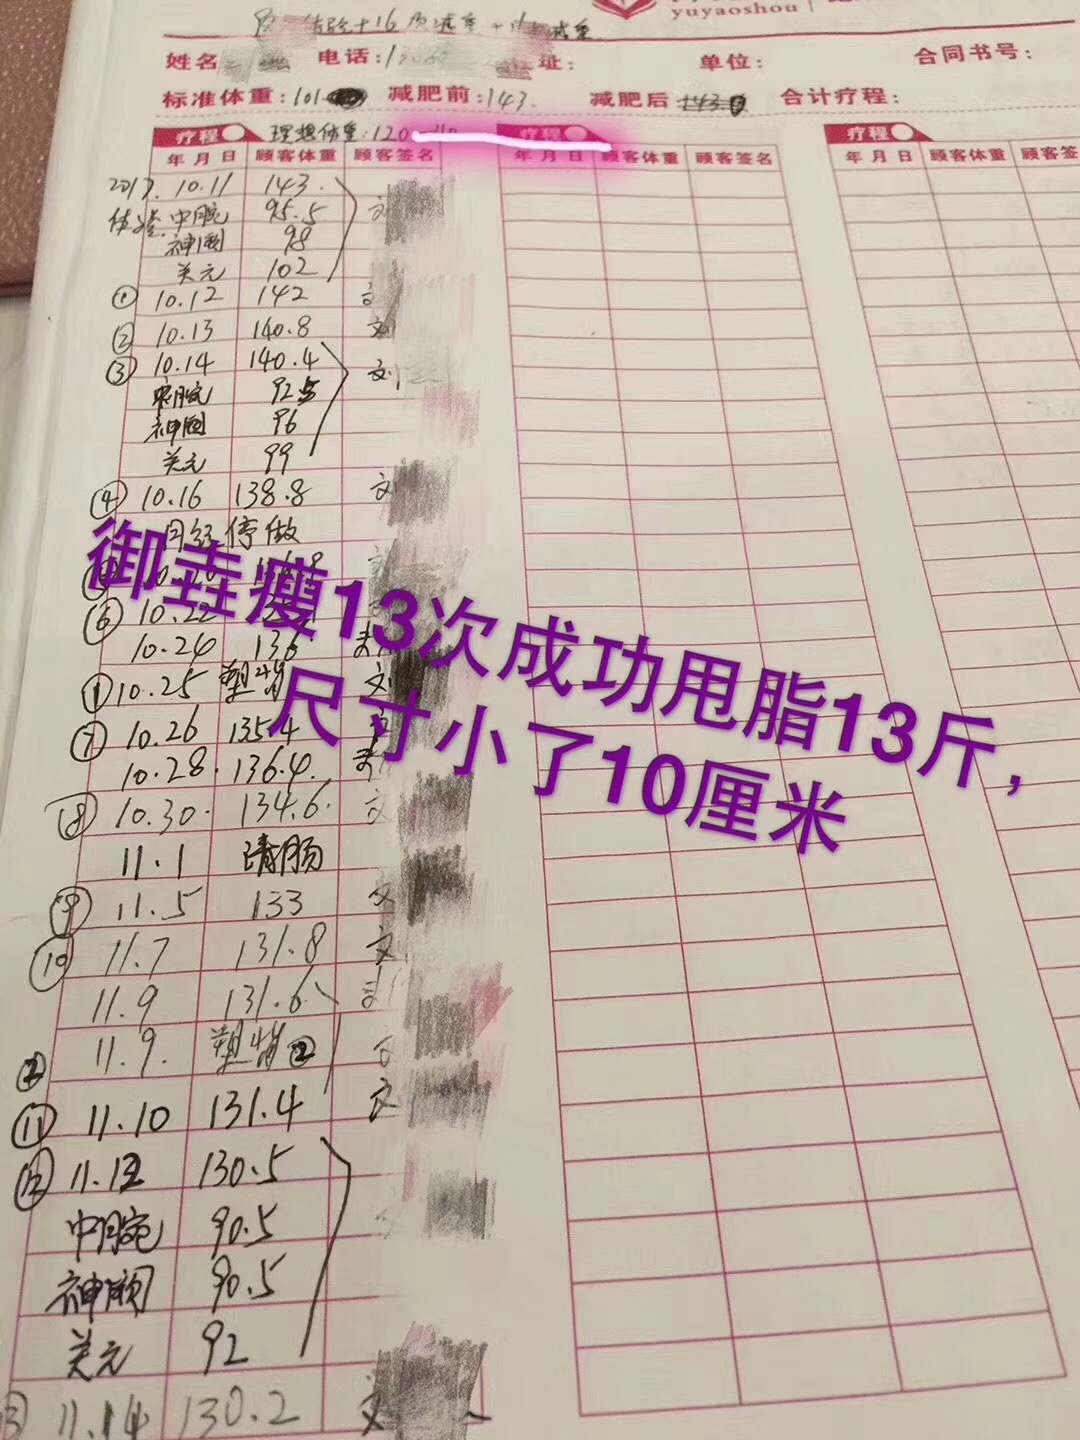 yuyaoshou
姓名 电话: 址: 单位: 合同书号:
标准体重:101 减肥前:143. 减肥后 143 合计疗程:
疗程 理想体重:120-110 疗程 疗程
年月日 顾客体重 顾客签名 年月日 顾客体重 顾客签名 年月日 顾客体重 顾客签
2017.10.11 143.
体验 中脘 95.5
神阙 98
关元 102
① 10.12 142
② 10.13 140.8 刘
③ 10.14 140.4 刘
中脘 92.5
神阙 96
关元 99
④ 10.16 138.8 刘
月经停做
⑥ 10.22
10.24 136
① 10.25 塑
⑦ 10.26 135.4
10.28. 136.4.
⑧ 10.30. 134.6.
11.1 清肠
⑨ 11.5 133
⑩ 11.7 131.8
11.9 131.6
② 11.9. 塑 ②
⑪ 11.10 131.4
⑫ 11.12 130.5
中脘 90.5
神阙 90.5
关元 92
⑬ 11.14 130.2
御垚瘦13次成功甩脂13斤,
尺寸小了10厘米